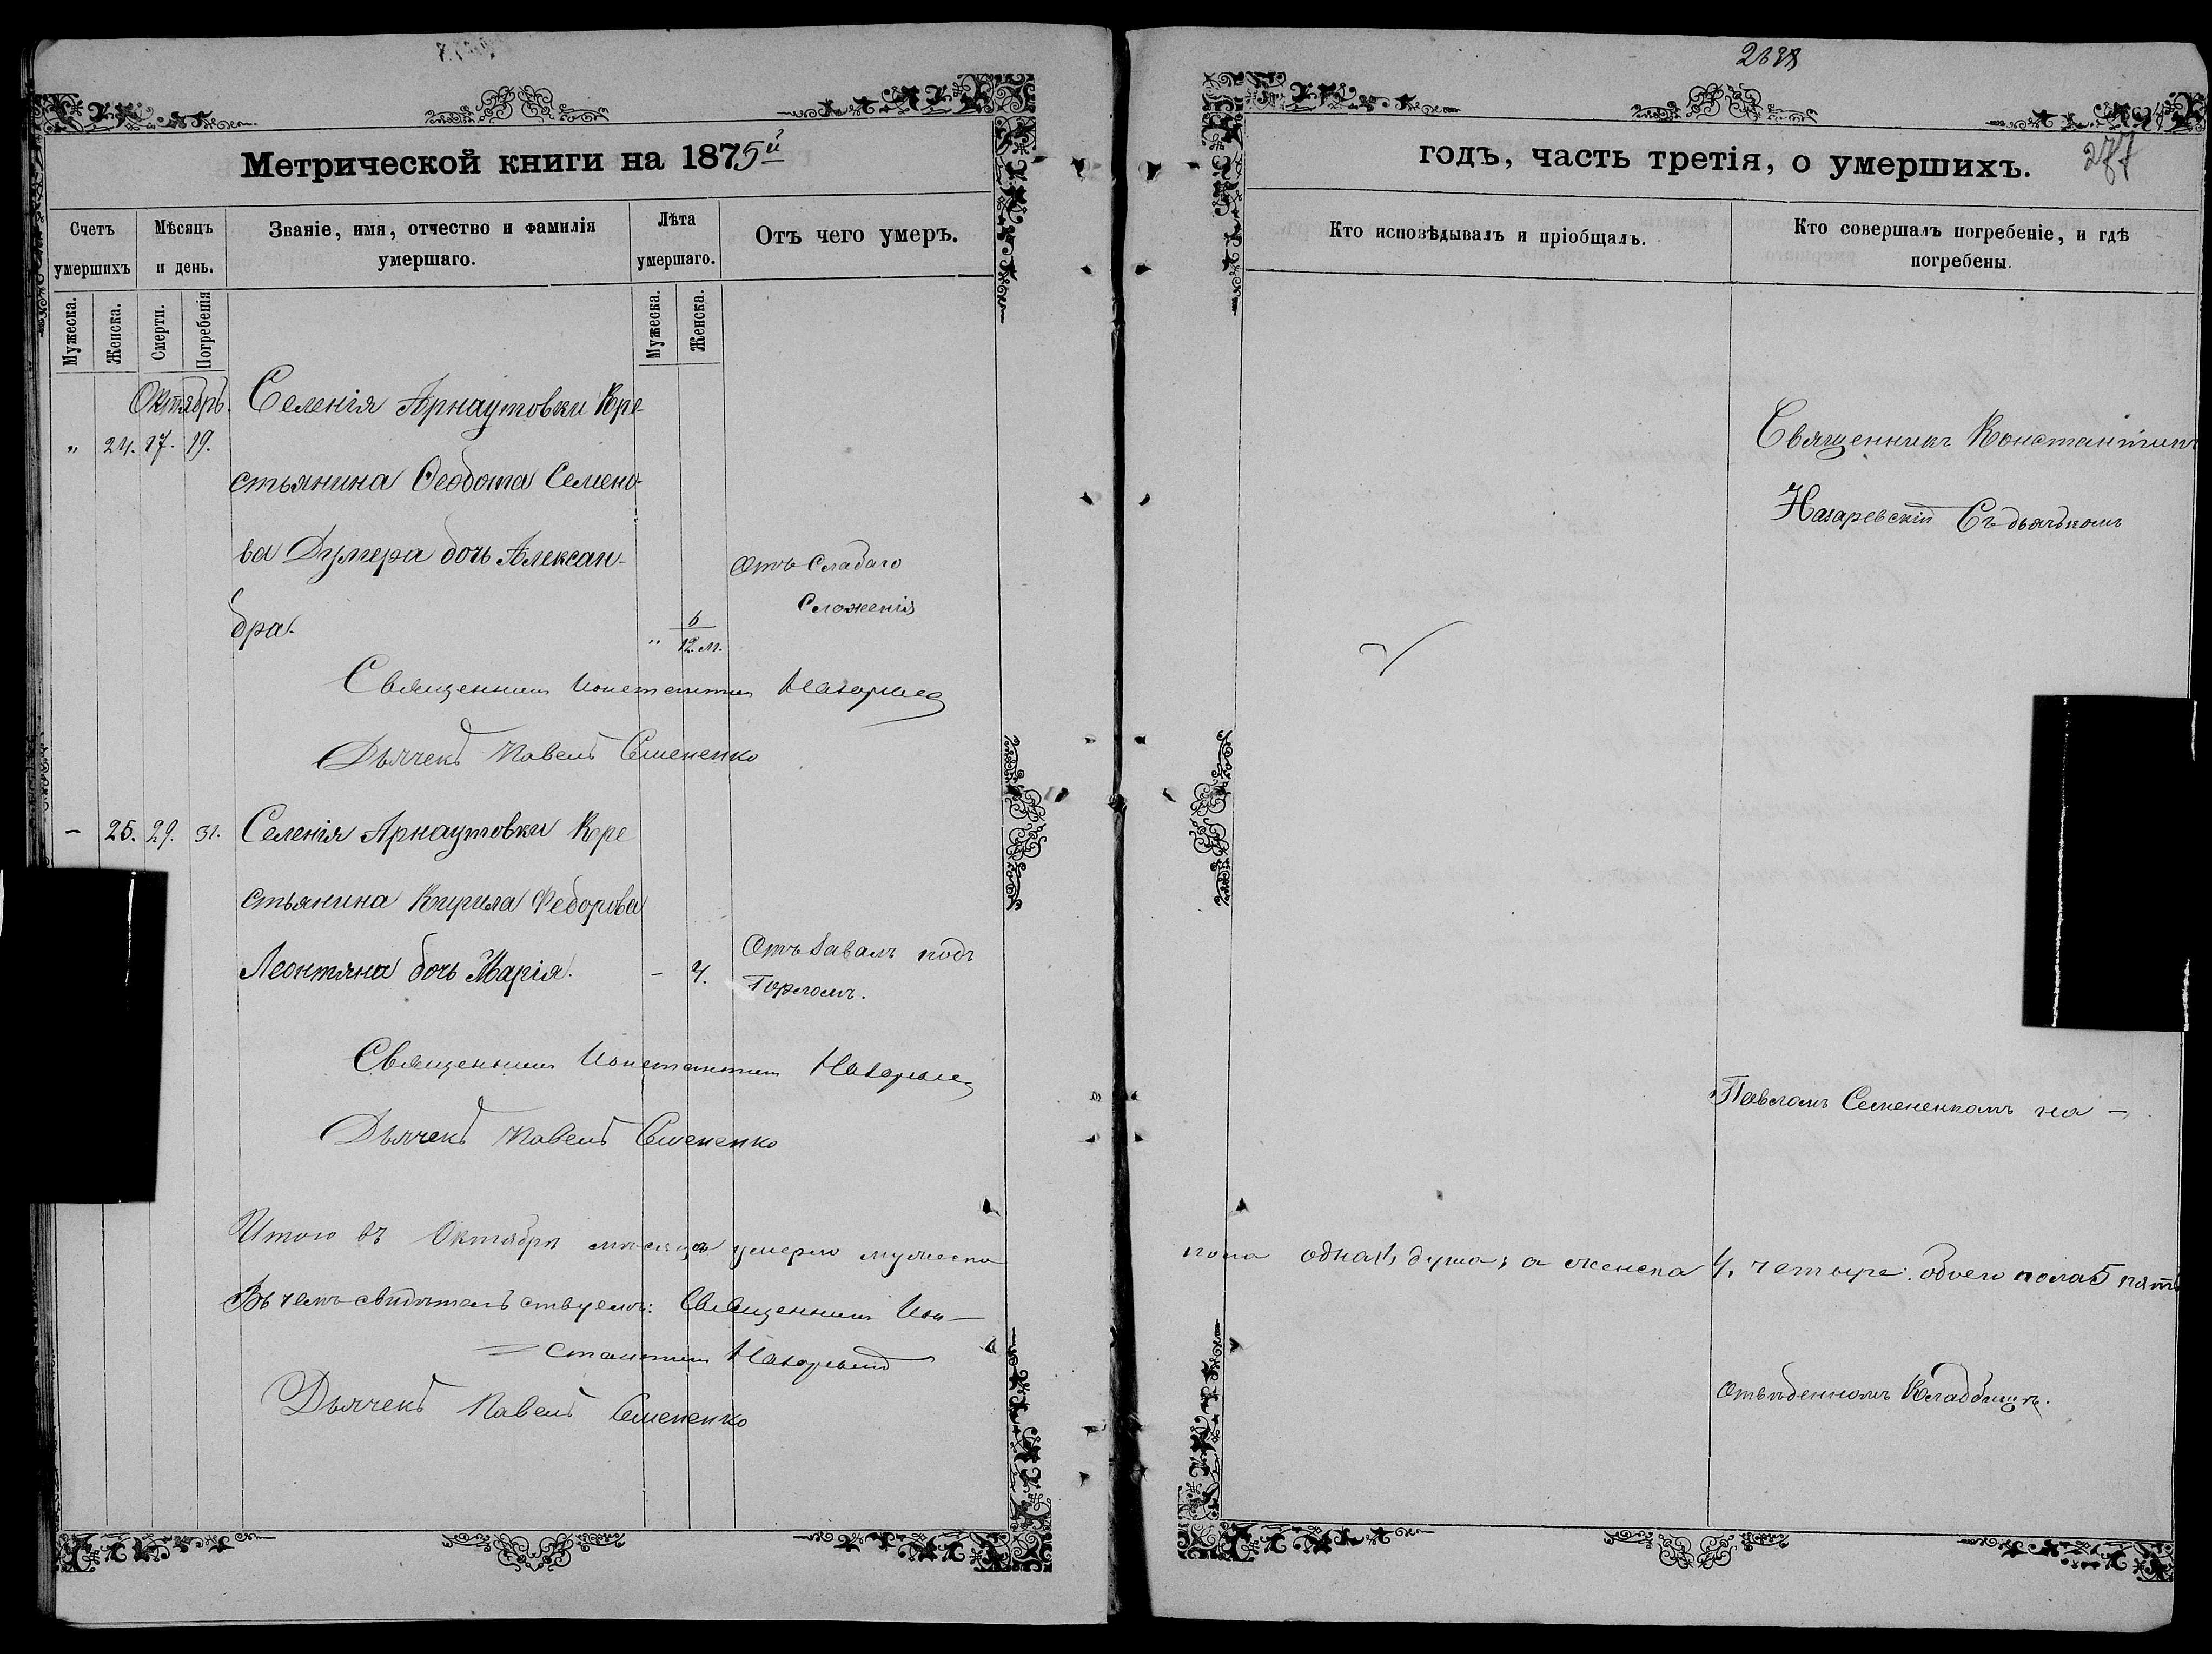 Метрической книги на 1875й
Счетъ умершихъ
Мѣсяцъ и день.
Званіе, имя, отчество и фамилія умершаго.
Лѣта умершаго.
Отъ чего умеръ.
Мужеска.
Женска.
Смерти.
Погребенія
Мужеска.
Женска.
Октябрь.
" 24. 17. 19.
Селенія Арнаутовки Кре-
стьянина Ѳеодота Семено-
ва Думера дочь Алексан-
дра.
" 6/12 м.
Отъ слабаго
Сложенія
Священникъ Константин
Дьячекъ Павелъ Семененко
- 25. 29. 31.
Селенія Арнаутовки Кре
стьянина Кирила Федорова
Леонтяна дочь Марія.
- 4.
Отъ
подъ
Горломъ.
Священникъ Константин
Дьячекъ Павелъ Семененко
Итого въ Октябрѣ мѣсяцѣ умерло мужеска
Въ чемъ свидѣтельствуемъ: Священникъ Кон-
= стантин
Дьячекъ Павелъ Семененко
2638
277
годъ, часть третія, о умершихъ.
Кто исповѣдывалъ и пріобщалъ.
Кто совершалъ погребеніе, и гдѣ погребены.
Священникъ Константинъ
Назаревскій Съ дьячкомъ
Павломъ Семененкомъ на -
пола одна 1, душа; а женска 4, четыре: обоего пола 5 пять
Отведенномъ Кладбищѣ.